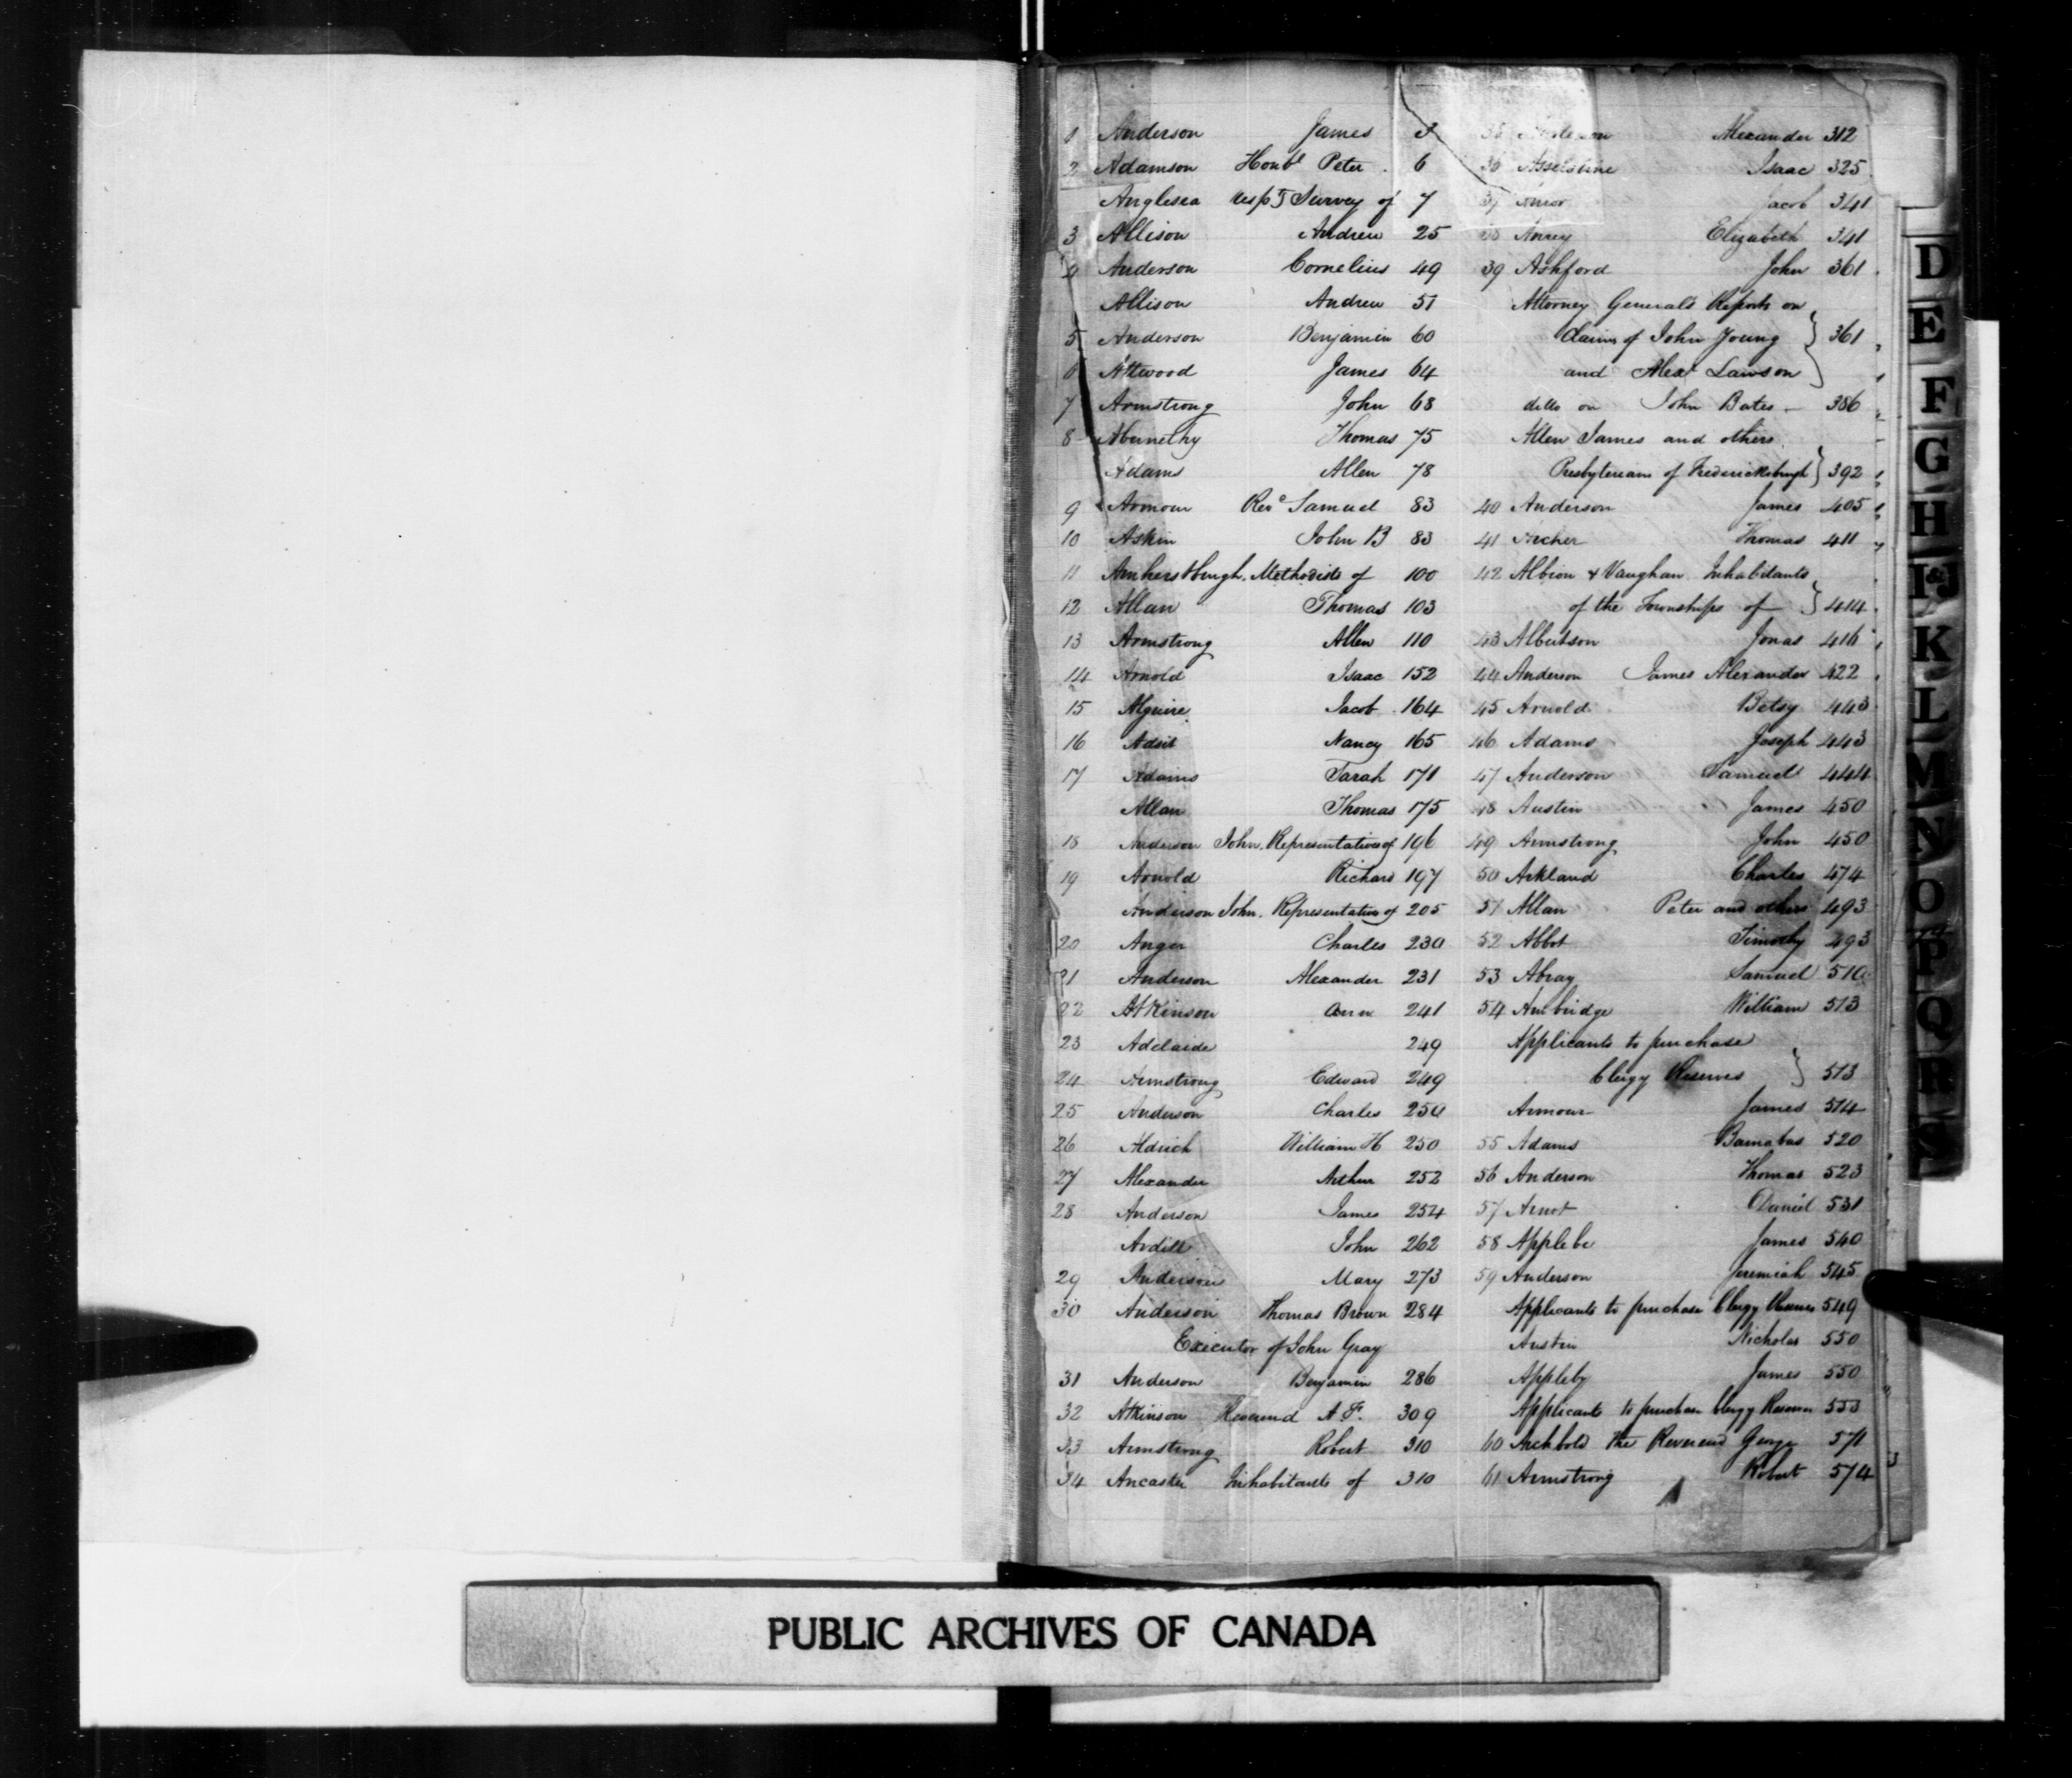 1 Anderson James 3
2 Adamson Honbl Peter 6
Anglesea resptg Survey of 7
3 Allison Andrew 25
4 Anderson Cornelius 49
Allison Andrew 51
5 Anderson Benjamin 60
6 Attwood James 64
7 Armstrong John 68
8 Abernethy Thomas 75
Adams Allen 78
9 Armour Revd Samuel 83
10 Askin John B 83
11 Amherstburgh, Methodists of 100
12 Allan Thomas 103
13 Armstrong Allen 110
14 Arnold Isaac 152
15 Alguire Jacob 164
16 Adsit Nancy 165
17 Adams Sarah 171
Allan Thomas 175
18 Anderson John, Representatives of 196
19 Arnold Richard 197
Anderson John, Representatives of 205
20 Anger Charles 230
21 Anderson Alexander 231
22 Atkinson Ann 241
23 Adelaide 249
24 Armstrong Edward 249
25 Anderson Charles 250
26 Aldrich William H 250
27 Alexander Arthur 252
28 Anderson James 254
Ardill John 262
29 Anderson Mary 273
30 Anderson Thomas Brown 284
Executor of John Gray
31 Anderson Benjamin 286
32 Atkinson Reverend A F. 309
33 Armstrong Robert 310
34 Ancaster Inhabitants of 310
35 Alexander 312
36 Asselstine Isaac 325
37 Jacob 341
38 Elizabeth 341
39 Ashford John 361
Attorney General's Reports on
claims of John Young } 361
and Alexr Lawson
ditto on John Bates 386
Allen James and others
Presbyterians of Fredericksburgh } 392
40 Anderson James 405
41 Archer Thomas 411
42 Albion & Vaughan Inhabitants
of the Townships of } 414
43 Albertson Jonas 416
44 Anderson James Alexander 422
45 Arnold Betsy 443
46 Adams Joseph 443
47 Anderson Samuel 444
48 Austin James 450
49 Armstrong John 450
50 Ackland Charles 474
51 Allan Peter and others 493
52 Abbot Timothy 493
53 Abray Samuel 510
54 Ambridge William 513
Applicants to purchase
Clergy Reserves } 513
Armour James 514
55 Adams Barnabas 520
56 Anderson Thomas 523
57 Arnot Daniel 531
58 Applebe James 540
59 Anderson Jeremiah 545
Applicants to purchase Clergy Reserves 549
Austin Nicholas 550
Appleby James 550
Applicants to purchase Clergy Reserves 553
60 Archbold The Reverend George 571
61 Armstrong Robert 574
D
E
F
G
H
I&J
K
L
M
N
O
P
Q
R
S
PUBLIC ARCHIVES OF CANADA